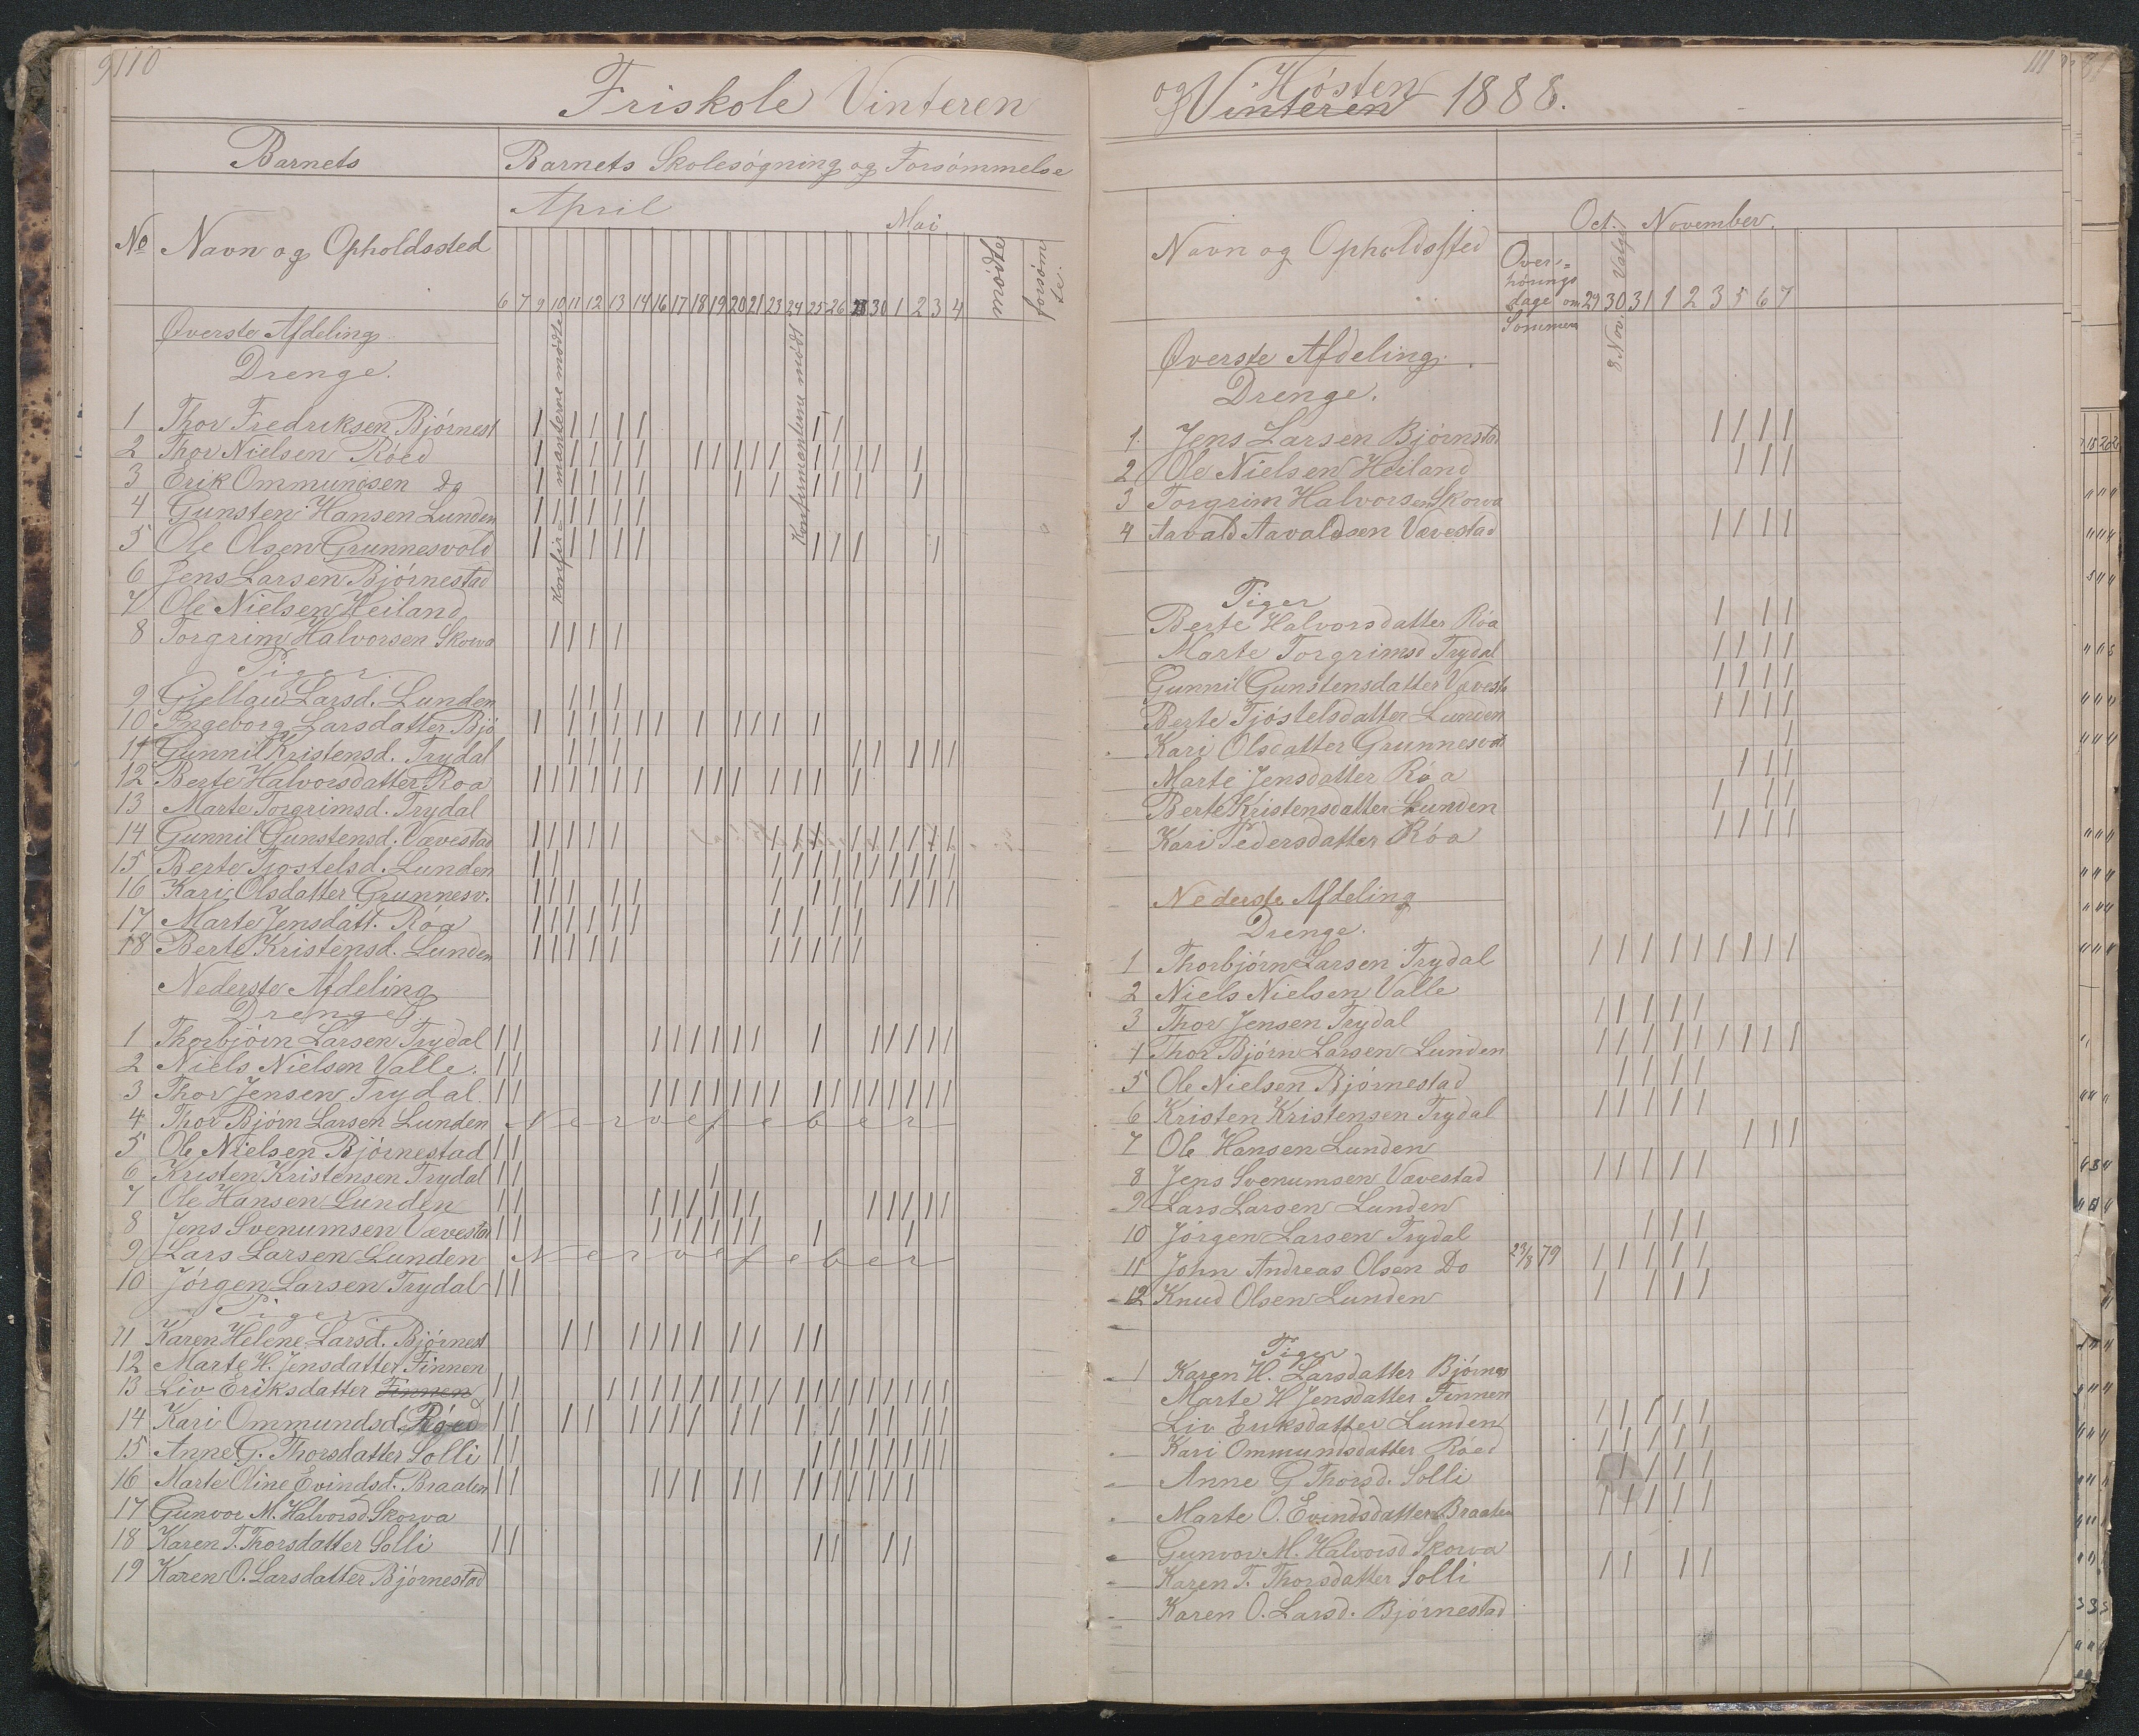 110
Friskole Vinteren
Barnets
Barnets Skolesøgning og Forsømmelse
April
Mai
No Navn og Opholdssted
mødte
forsømte.
6 7 9 10 11 12 13 14 16 17 18 19 20 21 23 24 25 26 28 30 1 2 3 4
Konfirmanterne mødte
Konfirmanterne mødt
Øverste Afdeling
Drenge.
1 Thor Fredriksen Bjørnest
2 Thor Nielsen Røed
3 Erik Ommundsen Do
4 Gunsten Hansen Lunden
5 Ole Olsen Grunnesvold
6 Jens Larsen Bjørnestad
7 Ole Nielsen Heiland
8 Torgrim Halvorsen Skorva
Piger
9 Gjellau Larsd. Lunden
10 Ingeborg Larsdatter Bjø
11 Gunnil Kristensd. Trydal
12 Berte Halvorsdatter Roa
13 Marte Torgrimsd. Trydal
14 Gunnil Gunstensd. Vævestad
15 Berte Tjøstelsd. Lunden
16 Kari Olsdatter Grunnesv.
17 Marte Jensdatt. Røa
18 Berte Kristensd. Lunden
Nederste Afdeling
Drenge
1 Thorbjörn Larsen Trydal
2 Niels Nielsen Valle.
3 Thor Jensen Trydal.
4 Thor Bjørn Larsen Lunden Nervefeber
5 Ole Nielsen Bjørnestad
6 Kristen Kristensen Trydal
7 Ole Hansen Lunden
8 Jens Svenumsen Vævestad
9 Lars Larsen Lunden Nervefeber
10 Jørgen Larsen Trydal
Piger
11 Karen Helene Larsd. Bjørnest
12 Marte H. Jensdatter Finnen
13 Liv Eriksdatter Finnen
14 Kari Ommundsd. Røed
15 Anne G. Thorsdatter Solli
16 Marte Oline Evindsd. Braaten
17 Gunvor M. Halvorsd. Skorva
18 Karen T. Thorsdatter Solli
19 Karen O. Larsdatter Bjørnestad
111
og Høsten
Vinteren 1888.
Oct. November.
Navn og Opholdssted
Overhøringsdage om Sommeren
29 30 31 1 2 3 5 6 7
8 Nov. Valg
Øverste Afdeling.
Drenge.
1 Jens Larsen Bjørnstad
2 Ole Nielsen Heiland
3 Torgrim Halvorsen Skorva
4 Aavald Aavaldsen Vævestad
Piger
Berte Halvorsdatter Röa
Marte Torgrimsd Trydal
Gunnil Gunstensdatter Vævesta
Berte Tjøstelsdatter Lunden
Kari Olsdatter Grunnesvold
Marte Jensdatter Røa
Berte Kristensdatter Lunden
Kari Pedersdatter Røa
Nederste Afdeling
Drenge.
1 Thorbjørn Larsen Trydal
2 Niels Nielsen Valle
3 Thor Jensen Trydal
4 Thor Bjørn Larsen Lunden
5 Ole Nielsen Bjørnestad
6 Kristen Kristensen Trydal
7 Ole Hansen Lunden
8 Jens Svenumsen Vævestad
9 Lars Larsen Lunden
10 Jørgen Larsen Trydal
11 John Andreas Olsen Do 23/8 79
12 Knud Olsen Lunden
Piger
1 Karen H. Larsdatter Bjørnes
Marte H Jensdatter Finnen
Liv Eriksdatter Lunden
Kari Ommundsdatter Røed
Anne G Thorsd. Solli
Marte O. Evindsdatter Braaten
Gunvor M. Halvorsd Skorva
Karen T. Thorsdatter Solli
Karen O. Larsd. Bjørnestad